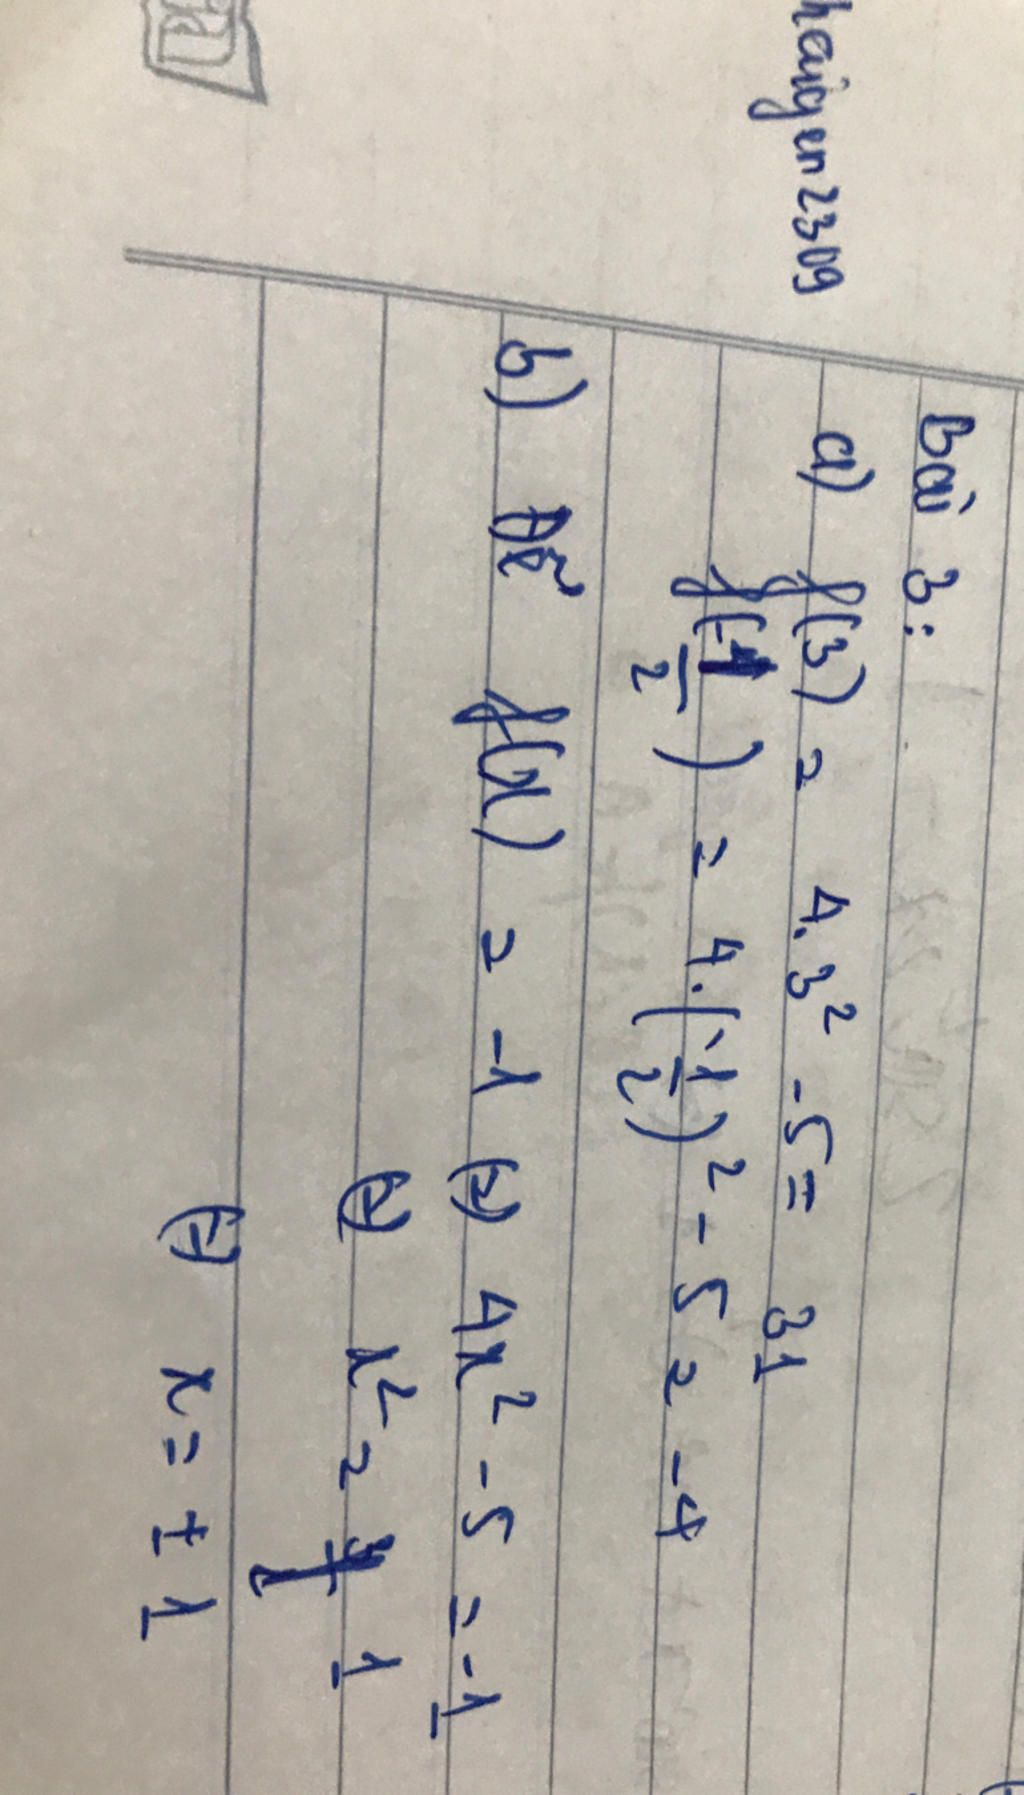 haigen2309
Bài 3:
a) f(3) = 4.3² - 5 = 31
f(-1/2) = 4.(-1/2)² - 5 = -4
b) Để f(x) = -1 (=) 4x² - 5 = -1
(=) x² = 1
(=) x = ± 1